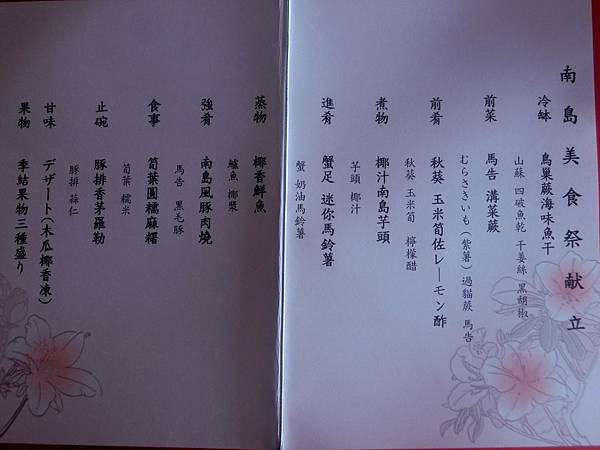 南島美食祭献立
冷缽 鳥巢蕨海味魚干
山蘇 四破魚乾 干姜絲 黑胡椒
前菜 馬告 溝菜蕨
むらさきいも(紫薯) 過貓蕨 馬告
前肴 秋葵 玉米筍佐レーモン酢
秋葵 玉米筍 檸檬醋
煮物 椰汁南島芋頭
芋頭 椰汁
進肴 蟹足 迷你馬鈴薯
蟹 奶油馬鈴薯
蒸物 椰香鮮魚
鱸魚 椰漿
強肴 南島風豚肉燒
馬告 黑毛豚
食事 筍葉圓糯麻糬
筍葉 糯米
止碗 豚排香茅羅勒
豚排 蒜仁
甘味 デザート(木瓜椰香凍)
果物 季結果物三種盛り